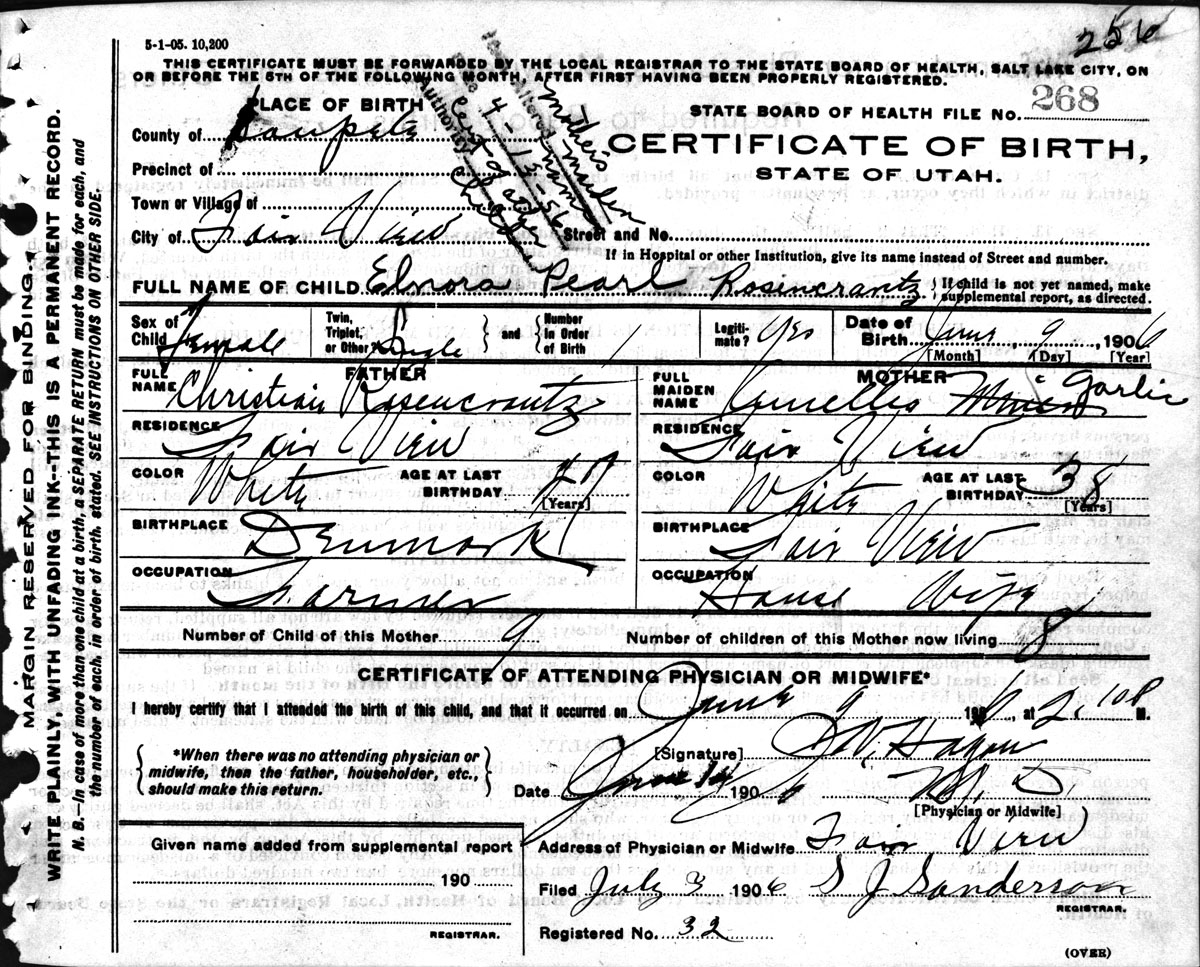 256
5-1-05. 10,200
THIS CERTIFICATE MUST BE FORWARDED BY THE LOCAL REGISTRAR TO THE STATE BOARD OF HEALTH, SALT LAKE CITY, ON
OR BEFORE THE 5TH OF THE FOLLOWING MONTH, AFTER FIRST HAVING BEEN PROPERLY REGISTERED.
PLACE OF BIRTH
STATE BOARD OF HEALTH FILE No. 268
County of Sanpete
CERTIFICATE OF BIRTH,
Precinct of
STATE OF UTAH.
Town or Village of
City of Fair View Street and No.
Altered mother's maiden name
4-12-56
Authority
If in Hospital or other Institution, give its name instead of Street and number.
FULL NAME OF CHILD Elnora Pearl Rosencrantz { If child is not yet named, make supplemental report, as directed.
Sex of Child Female Twin, Triplet, or Other? Single } and { Number In Order of Birth 1 Legiti- mate? Yes Date of Birth June 9, 1906
[Month] [Day] [Year]
FATHER MOTHER
FULL NAME Christian Rosencrantz FULL MAIDEN NAME Garlic
RESIDENCE Fair View RESIDENCE Fair View
COLOR White AGE AT LAST BIRTHDAY 47 [Years] COLOR White AGE AT LAST BIRTHDAY 38 [Years]
BIRTHPLACE Denmark BIRTHPLACE Fair View
OCCUPATION Farmer OCCUPATION House Wife
Number of Child of this Mother 9 Number of children of this Mother now living 8
CERTIFICATE OF ATTENDING PHYSICIAN OR MIDWIFE*
I hereby certify that I attended the birth of this child, and that it occurred on June 9 1906, at 2.10 P. M.
{ *When there was no attending physician or midwife, then the father, householder, etc., should make this return. }
[Signature]
Date June 190 6 M. D.
[Physician or Midwife]
Given name added from supplemental report
Address of Physician or Midwife Fair View
190
Filed July 3 1906 S J Sanderson
REGISTRAR.
REGISTRAR.
Registered No. 32
(OVER)
MARGIN RESERVED FOR BINDING.
WRITE PLAINLY, WITH UNFADING INK--THIS IS A PERMANENT RECORD.
N. B.—In case of more than one child at a birth, a SEPARATE RETURN must be made for each, and
the number of each, in order of birth, stated. SEE INSTRUCTIONS ON OTHER SIDE.